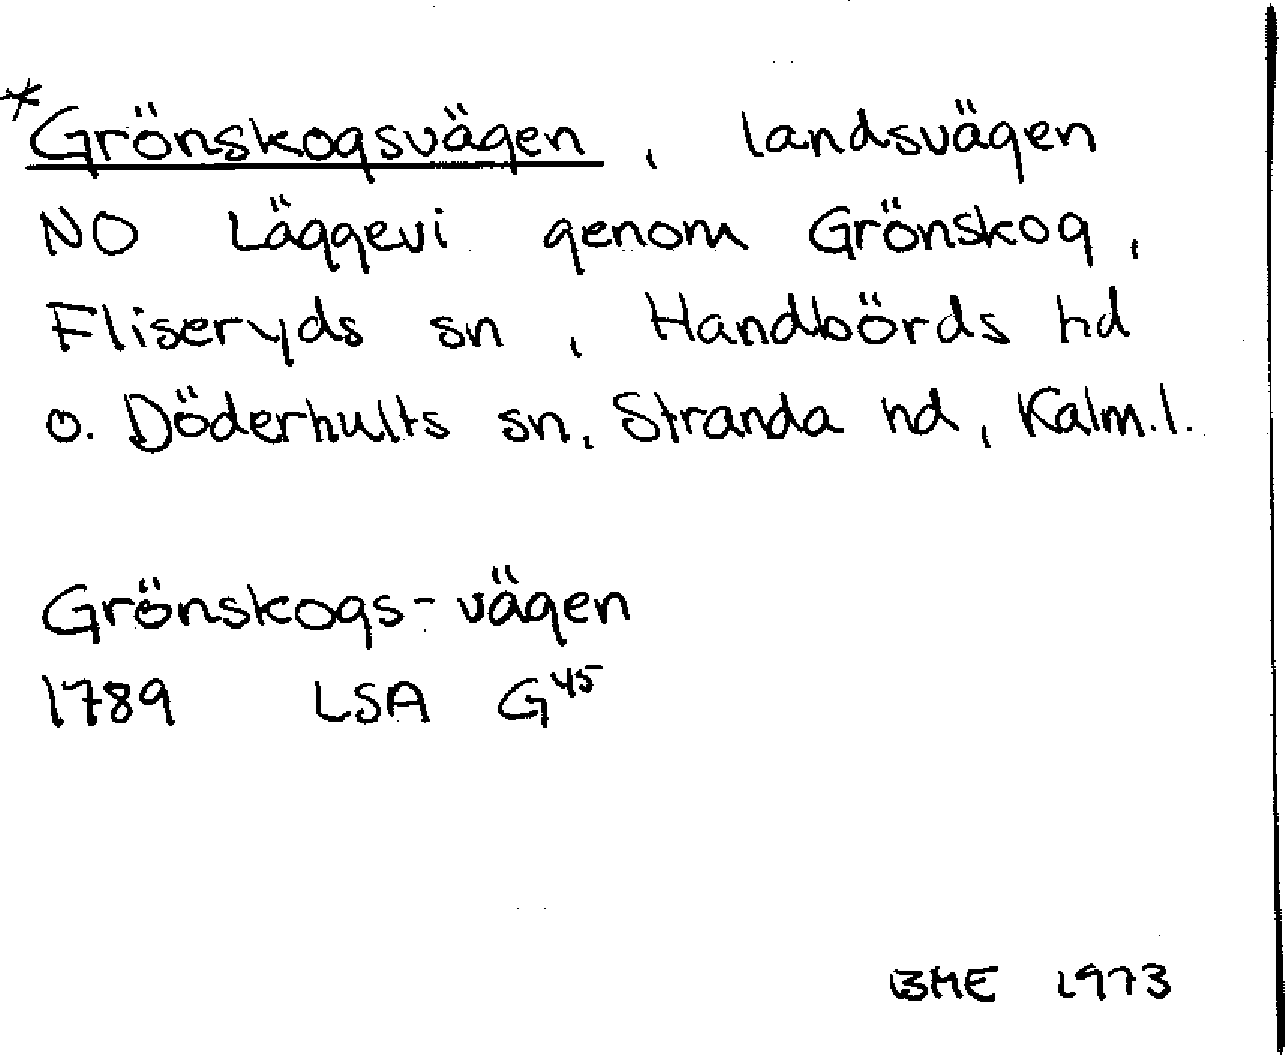 *Grönskogsvägen, landsvägen
NO Läggevi genom Grönskog,
Fliseryds sn, Handbörds hd
o. Döderhults sn, Stranda hd, Kalm.l.
Grönskogs-vägen
1789 LSA G45
BME 1973